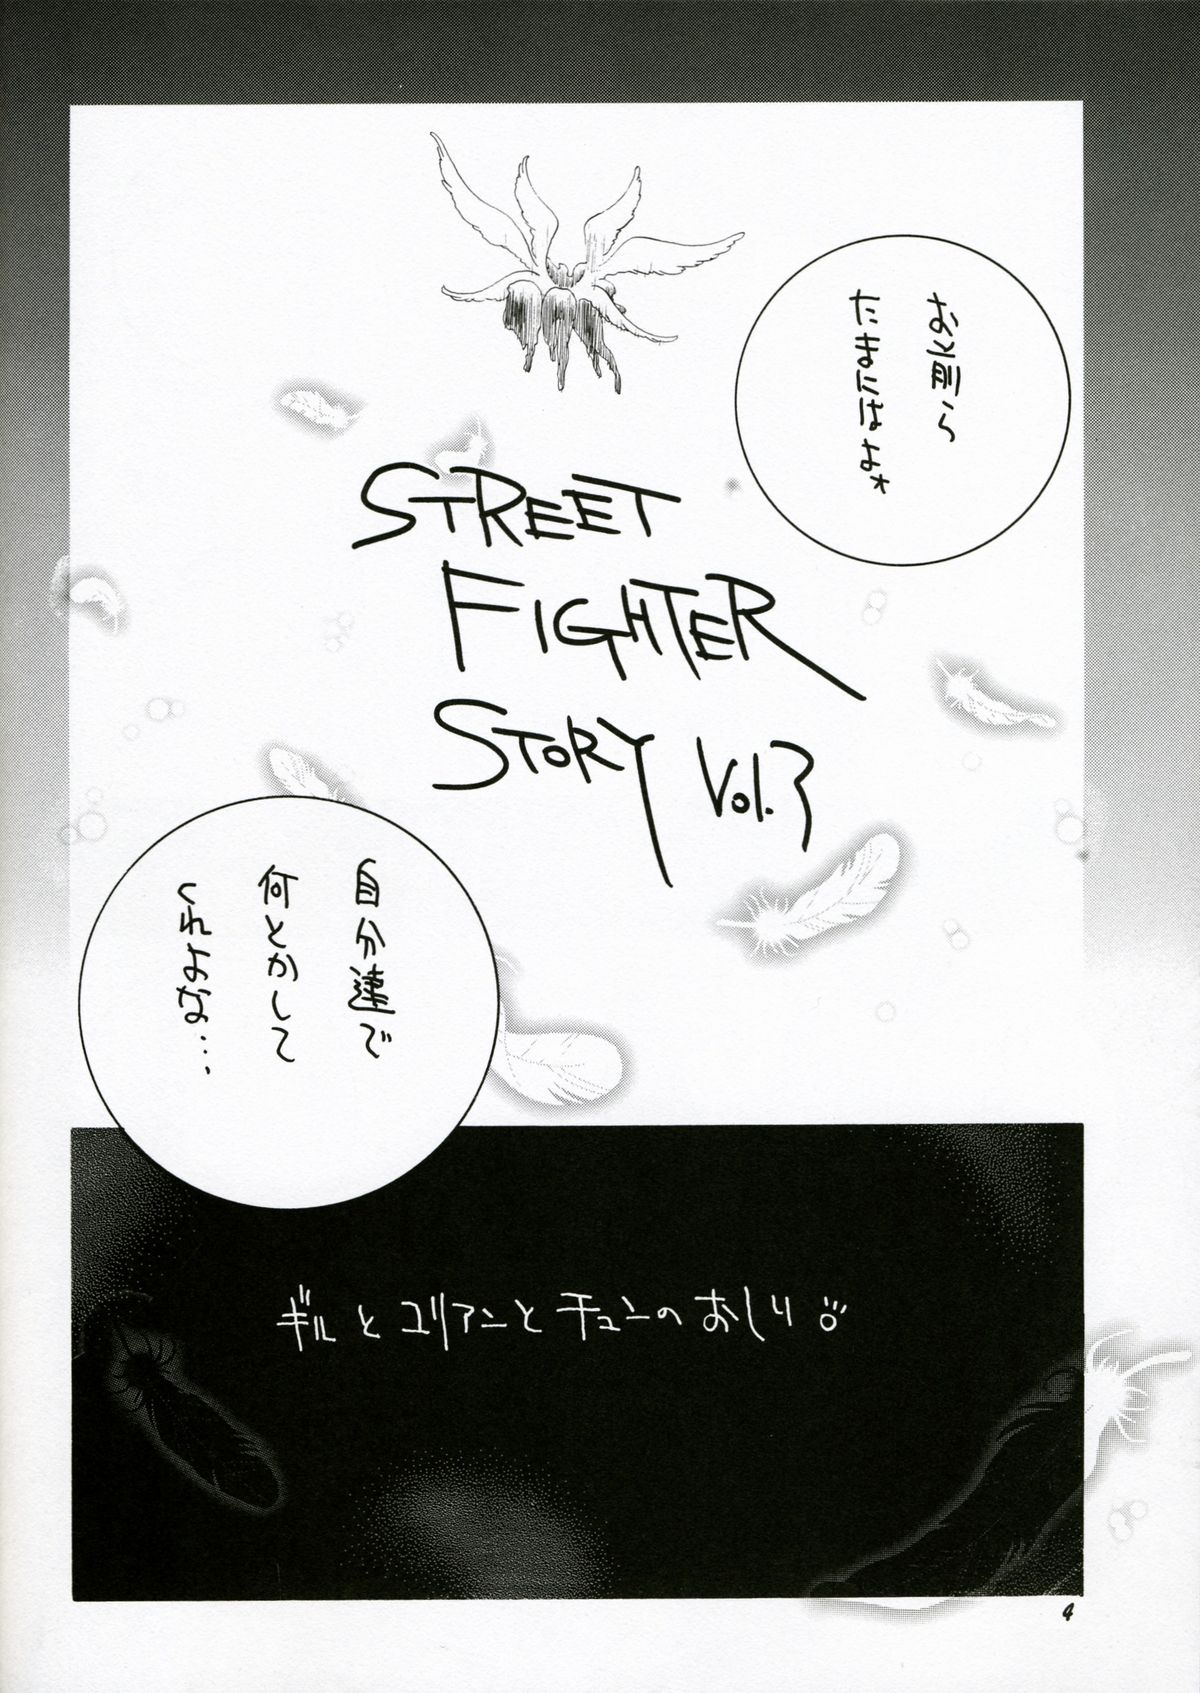 お前ら
たまにはよ★
STREET
FIGHTER
STORY Vol.3
自分達で
何とかして
くれよな…
ギルとユリアンとチュンのおしり
4